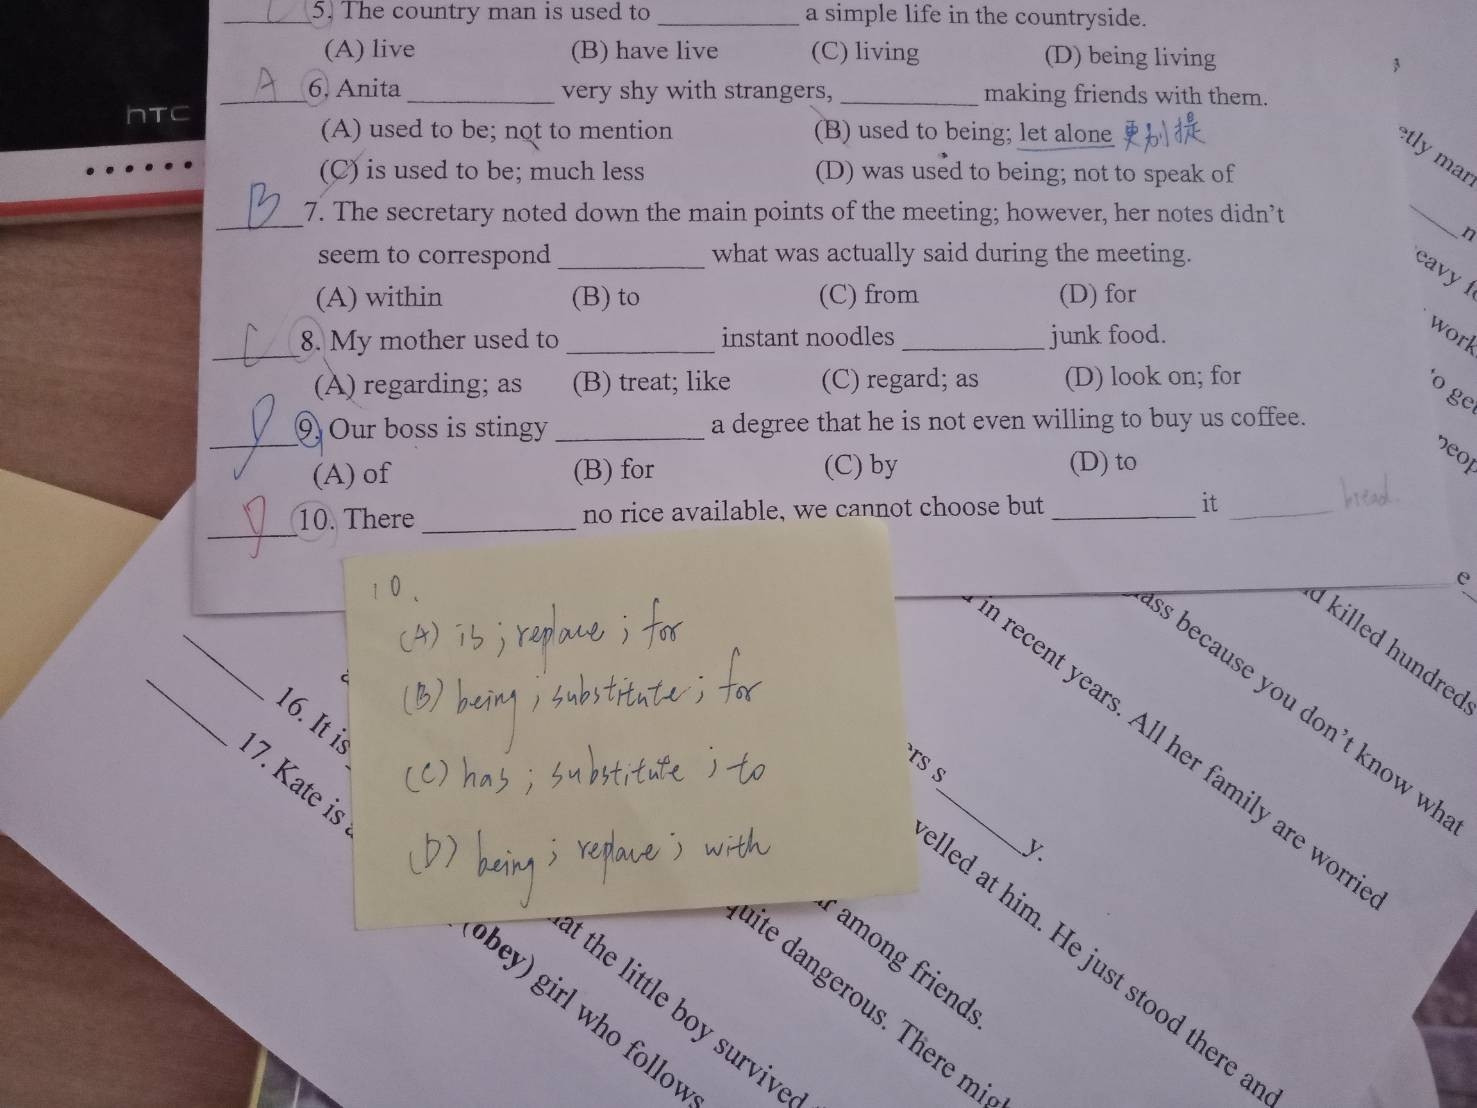 C 5. The country man is used to __________ a simple life in the countryside.
(A) live (B) have live (C) living (D) being living
A 6. Anita __________ very shy with strangers, __________ making friends with them.
hTC
(A) used to be; not to mention (B) used to being; let alone 更別提
(C) is used to be; much less (D) was used to being; not to speak of
B 7. The secretary noted down the main points of the meeting; however, her notes didn't
seem to correspond __________ what was actually said during the meeting.
(A) within (B) to (C) from (D) for
C 8. My mother used to __________ instant noodles __________ junk food.
(A) regarding; as (B) treat; like (C) regard; as (D) look on; for
9. Our boss is stingy __________ a degree that he is not even willing to buy us coffee.
(A) of (B) for (C) by (D) to
10. There __________ no rice available, we cannot choose but __________ it __________ bread.
10.
(A) is; replace; for
(B) being; substitute; for
(C) has; substitute; to
(D) being; replace; with
16. It is
17. Kate is
(obey) girl who follows
at the little boy survived
quite dangerous. There
among friends.
velled at him. He just stood there and
y.
in recent years. All her family are worried
because you don't know what
killed hundreds
work